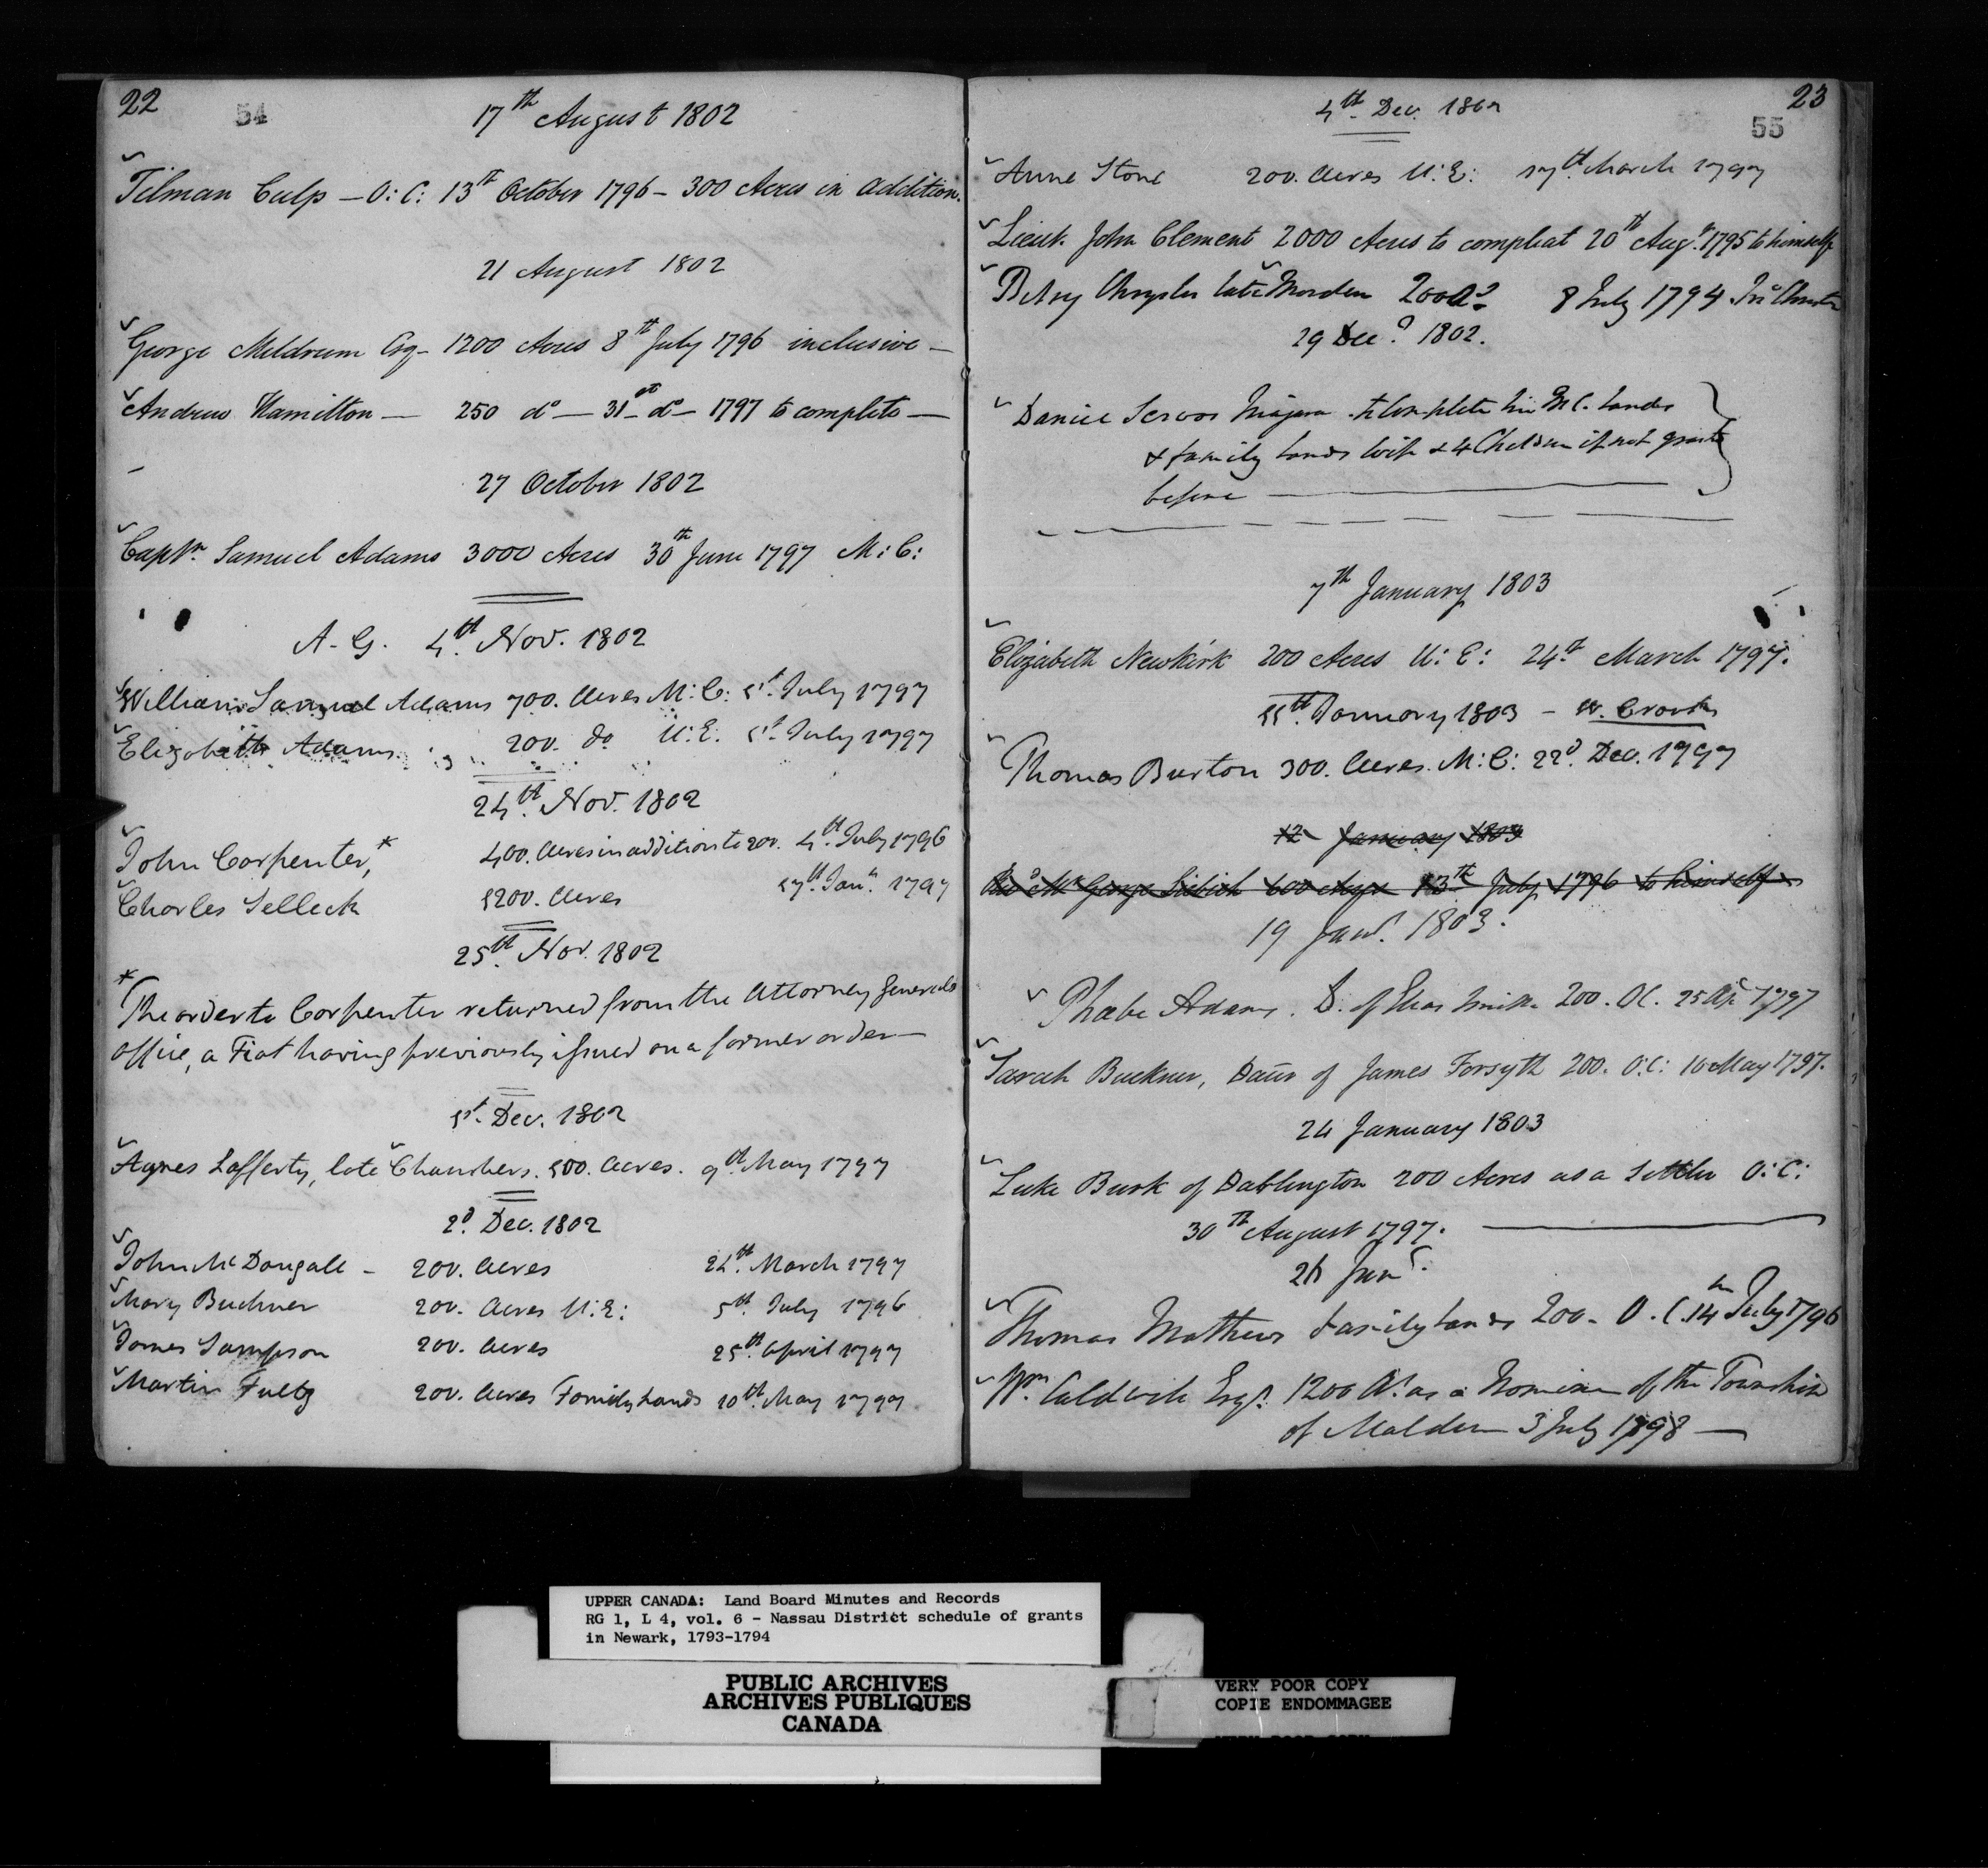 22
54
17th August 1802
Tilman Culp — O: C: 13th October 1796 — 300 Acres in addition.
21 August 1802
George Meldrum Esq — 1200 Acres 8th July 1796 inclusive —
Andrew Hamilton — 250 do — 31st do — 1797 to complete —
27 October 1802
Captn. Samuel Adams 3000 Acres 30th June 1797 M: C:
A. G. 4th. Nov. 1802
William Samuel Adams 700. Acres M: C: 1st. July 1797
Elizabeth Adams 200. do U. E. 1st. July 1797
24th. Nov. 1802
John Carpenter,* 400. Acres in addition to 200. 4th. July 1796
Charles Selleck 1200. Acres 17th. Jany. 1797
25th. Nov. 1802
*The order to Carpenter returned from the Attorney Generals
Office, a Fiat having previously issued on a former order —
1st. Dec. 1802
Agnes Lafferty, late Chambers. 100. Acres. 9th. May 1797
2d. Dec. 1802
John McDougall — 200. Acres 24th. March 1797
Mary Buchner 200. Acres U. E: 5th. July 1796
James Sampson 200. Acres 25th. April 1797
Martin Fultz 200. Acres Family Lands 10th. May 1797
23
55
4th. Dec. 1802
Anne Stone 200. Acres U: E: 17th. March 1797
Lieut. John Clement 2000 Acres to compleat 20th Augt. 1795 to himself
Betsy Chrysler late Morden 200 As. 8 July 1794
29 Dec. 1802.
Daniel Servos Niagara to Complete his M C. Lands
& family Lands Wife & 4 Children if not granted
before
7th January 1803
Elizabeth Newkirk 200 Acres U: E: 24th March 1797.
11th. January 1803 —
Thomas Burton 300. Acres. M: C: 22d. Dec. 1797
12 January 1803
George 600 Acres 13th July 1796 to himself
19 Jany. 1803.
Phœbe Adams. D. of Elias Smith. 200. OC. 25 Ap 1797
Sarah Buckner, Daur of James Forsyth 200. O.C: 16 May 1797.
24 January 1803
Luke Burk of Dablington 200 Acres as a Settler O: C:
30th August 1797.
26 Jany.
Thomas Mathews Family Lands 200 — O. C. 14th July 1796
Wm. Caldwell Esqr. 1200 As. as a Nominee of the Township
of Malden 3 July 1798 —
UPPER CANADA: Land Board Minutes and Records
RG 1, L 4, vol. 6 - Nassau District schedule of grants
in Newark, 1793-1794
PUBLIC ARCHIVES
ARCHIVES PUBLIQUES
CANADA
VERY POOR COPY
COPIE ENDOMMAGEE